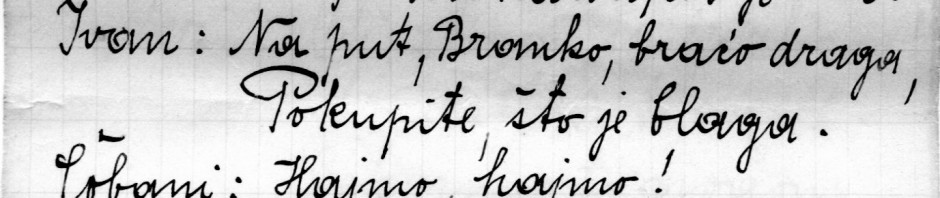 Ivan: Na put, Branko, braćo draga,
Pokupite, što je blaga.
Čobani: Hajmo, hajmo!